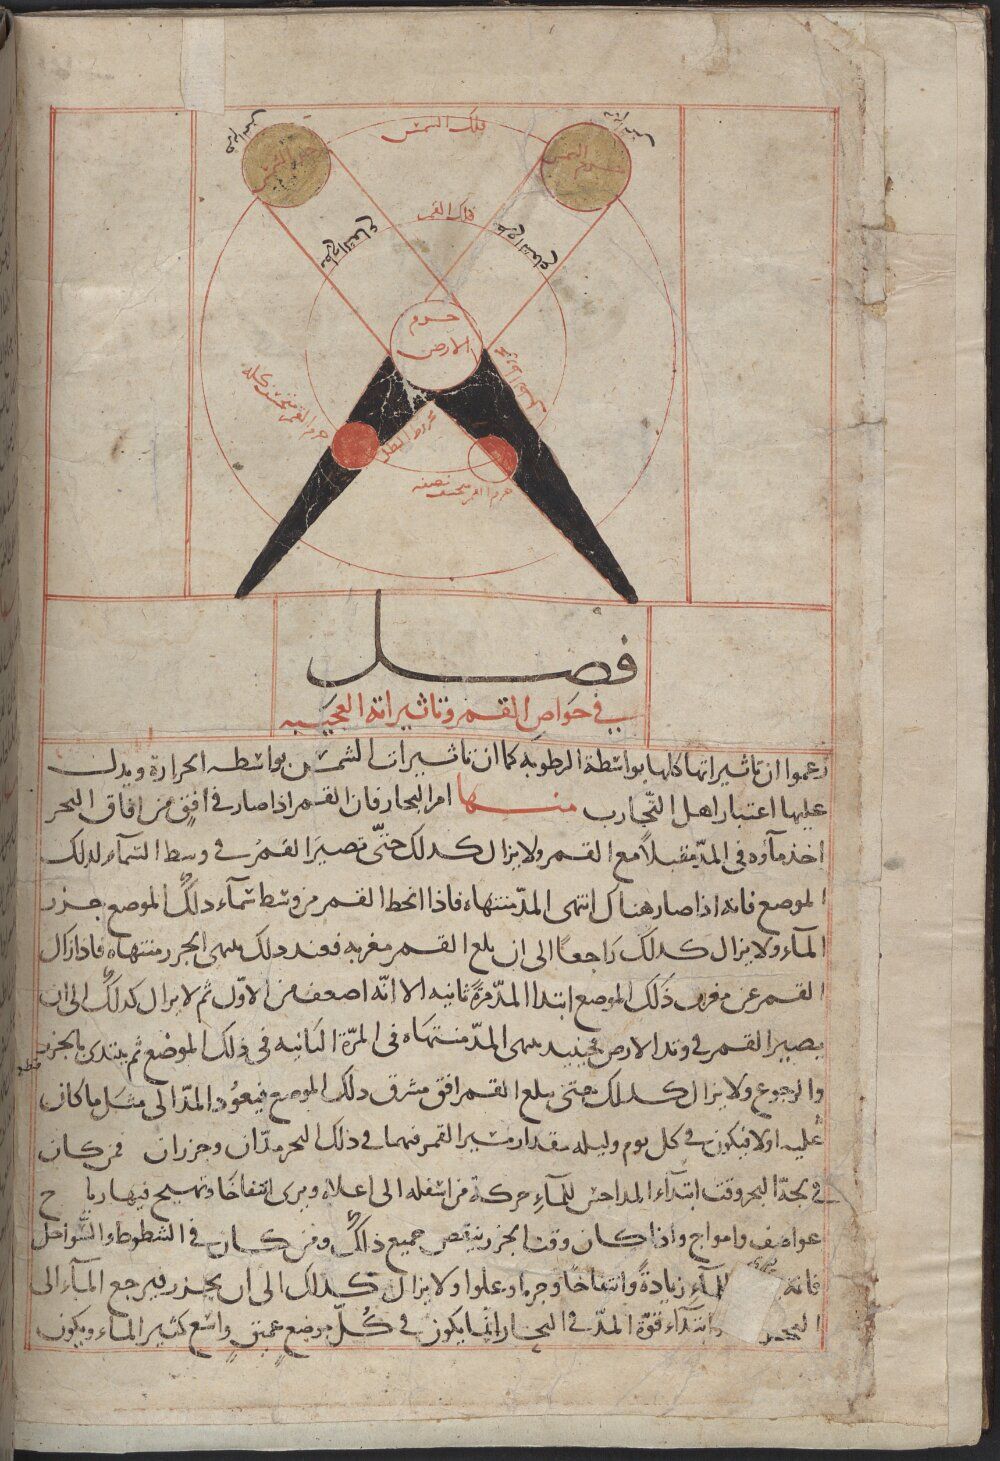 فلك الشمس
جرم الشمس
جرم الشمس
فلك القمر
شعاع
شعاع
جرم
الارض
جرم القمر منخسف كله
مخروط الظل
جرم القمر منخسف نصفه
فصل
في خواص القمر وتاثيراته العجيبه
زعموا ان تاثيراتها كلها بواسطة الرطوبه كما ان تاثيرات الشمس بواسطه الحرارة ويدل
عليها اعتبار اهل التجارب منها امر البحار فان القمر اذا صار في افق من افاق البحر
اخذ مآؤه في المدّ مقبلاً مع القمر ولا يزال كذلك حتّى تصير القمر في وسط السمآء لذلك
الموضع فانه اذا صار هناك انتهى المدّ منتهاه فاذا انحط القمر من وسط سمآء ذلك الموضع جزر
المآء ولا يزال كذلك رَاجعاً الى ان بلغ القمر مغربه فعند ذلك ينتهى الجزر منتهاه فاذا زال
القمر عن مغرب ذَلك الموضع ابتدا المدّ مرّةً ثانيه الا انّه اضعف من الاوّل ثم لا يزال كذلك الى ان
يصير القمر في وتد الارض فحينئذ ينتهى المدّ منتهَاه فى المرّة الثانيه فى ذلك الموضع ثم يبتدى بالجزر
والرجوع ولا يزال كذلك حتى يبلغ القمر افق مشرق ذلك الموضع فيعوُد المدّ الى مثل ما كان
عليه اولا فيكون في كل يوم وليله بمقدار مسير القمر فيهما في ذلك البحر مدّان وجزران فمن كان
في لجة البحر وقت ابتدآء المد احس للمآء حركة من اسفله الى اعلاه ويرى انتفاخًا وتهيج فيها رياح
عواصف وامواج واذا كان وقت الجزر ينقص جميع ذلك ومن كان في الشطوط والسّواحل
فانه للمآء زيادةً وانتفاخًا وجريا وعلوا ولا يزال كذلك الى ان يجزر فيرجع المآء الى
البحر ابتدآء قوّة المدّ في البحار انّما يكون في كُلّ موضع عميقٍ واسع كثير الماء ويكون